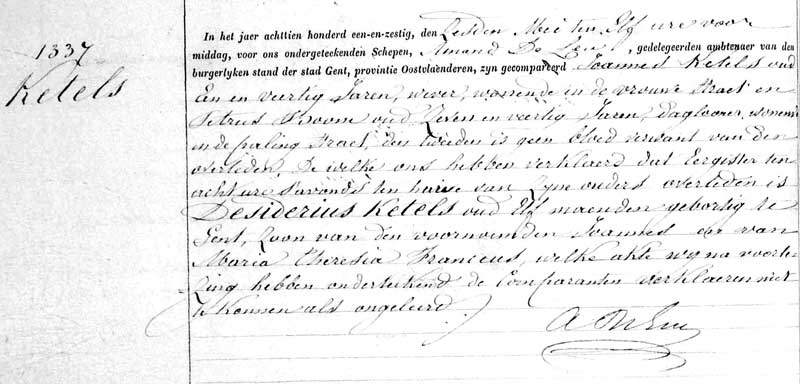 1337
Ketels
In het jaer achttien honderd een-en-zestig, den Zesden Mei ten Elf ure voor
middag, voor ons ondergeteekenden Schepen, Amand De Leu, gedelegeerden ambtenaer van den
burgerlyken stand der stad Gent, provintie Oostvlaenderen, zyn gecompareerd Joannes Ketels oud
Een en veertig Jaren, wever, wonende in de vrouwe Straet en
Petrus Boone oud Zeven en veertig Jaren, daglooner, wonende
in de paling Straet, den tweeden is geen bloed verwant van den
overleden, De welke ons hebben verklaerd dat Eergister ten
acht ure Savonds ten huize van Zyne ouders overleden is
Desiderius Ketels oud Elf maenden gebortig te
Gent, Zoon van den voornoemden Joannes en van
Maria Theresia Franceus, welke akte wy na voorle-
Zing hebben onderteekend de Comparanten verklaeren niet
te konnen als ongeleerd
A De Leu